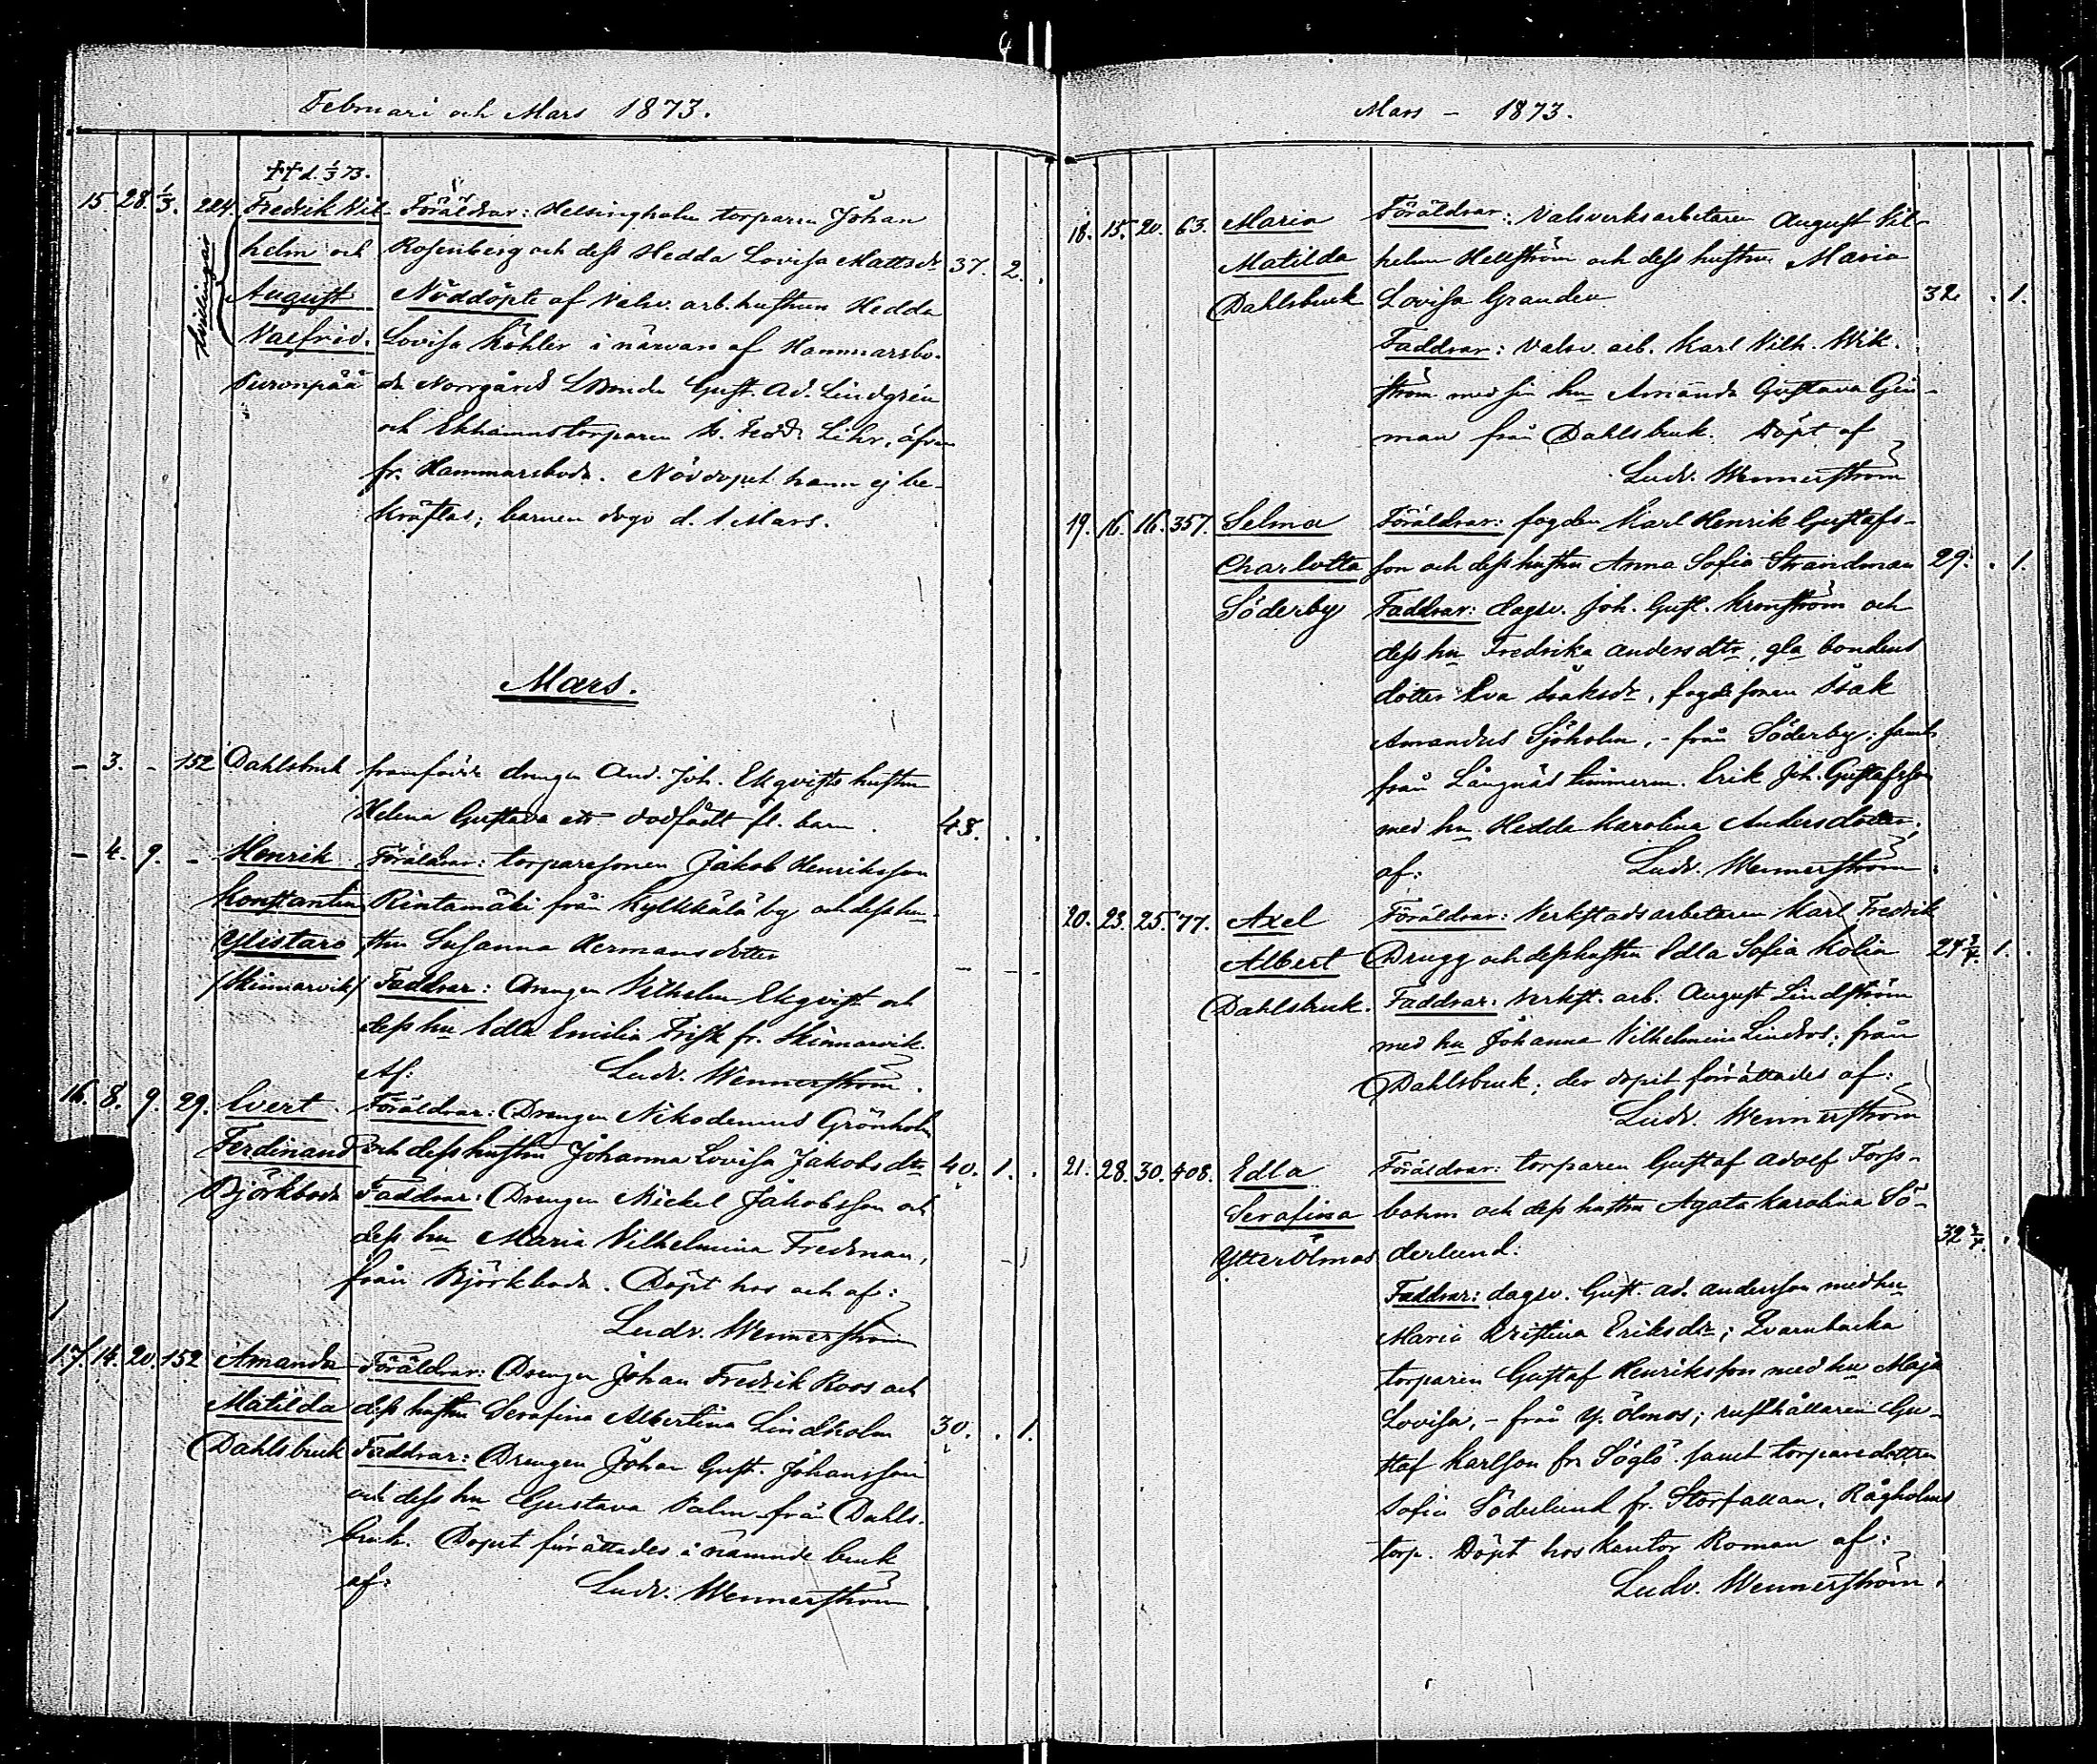 Februari och Mars 1873.
†† d. 1/3 73.
15. 28. 1/3. 224. Fredrik Vil- Föräldrar: Helsingholm torparen Johan
helm och Rosenberg och dess Hedda Lovisa Mattsdr 37. 2.
Tvillingar
August Nöddöpte af Valsv. arb. hustrun Hedda
Valfrid. Lovisa Köhler i närvaro af Hammarsbo-
da Norrgårds Gust. Ad. Lindgrén
och torparen Lihr, äfven
fr. Hammarsboda. Nöddopet hann ej be-
kräftas; barnen dogo d. 1 Mars.
Mars.
- 3. - 152 Dahlsbruk framfödde drengen And. Joh. Ekqvists hustru
Helena Gustava ett dödfödt fl. barn. 43.
- 4. 9. - Henrik Föräldrar: torparesonen Jakob Henriksson
Konstantin Rintamäki från Kylkkälä by och dess hu-
Ylistaro stru Susanna Hermansdotter
/Skinnarvik/ Faddrar: Drengen Vilhelm Ekqvist och
dess hu Edla Emilia Frisk fr. Skinnarvik.
Af: Ludv. Wennerström.
16. 8. 9. 29. Evert Föräldrar: Drengen Nikodemus Grönholm
Ferdinand och dess hustru Johanna Lovisa Jakobsdtr 40. 1.
Björkboda Faddrar: Drengen Mickel Jakobsson och
dess hu Maria Vilhelmina Fredman,
från Björkboda. Döpt hos och af:
Ludv. Wennerström
17. 14. 20. 152 Amanda Föräldrar: Drengen Johan Fredrik Roos och
Matilda dess hustru Serafina Albertina Lindholm 30. 1.
Dahlsbruk Faddrar: Drengen Johan Gust. Johansson
och dess hu Gustava Palm från Dahls-
bruk. Dopet förrättades i nämnde bruk
af: Ludv. Wennerström
Mars - 1873.
18. 15. 20. 63. Maria Föräldrar: Valsverksarbetaren August Vil-
Matilda helm Hellström och dess hustru Maria
Dahlsbruk Lovisa Grandex 32. 1.
Faddrar: valsv. arb. Karl Vilh. Wik-
ström med sin hu Amanda Gustava
man från Dahlsbruk. Döpt af
Ludv. Wennerström
19. 16. 16. 357. Selma Föräldrar: fogden Karl Henrik Gustafs-
Charlotta son och dess hustru Anna Sofia Strandman 29. 1.
Söderby Faddrar: dagsv. Joh. Gust. Kronström och
dess hu Fredrika Andersdtr, gla bondens
dotter Eva Isaksdr, fogdesonen Isak
Amandus Sjöholm, - från Söderby; samt
från Långnäs timmerm. Erik Joh. Gustafsson
med hu Hedda Karolina Andersdotter,
af: Ludv. Wennerström.
20. 23. 25. 77. Axel Föräldrar: Verkstadsarbetaren Karl Fredrik
Albert Drugg och dess hustru Edla Sofia Kolin 24 3/4. 1.
Dahlsbruk. Faddrar: Verkst. arb. August Lindström
med hu Johanna Vilhelmina Lindros; från
Dahlsbruk, der dopet förrättades af:
Ludv. Wennerström
21. 28. 30. 408. Edla Föräldrar: torparen Gustaf Adolf Forss-
Serafina bohm och dess hustru Agata Karolina Sö-
YtterÖlmos derlund. 32
Faddrar: dagsv. Gust. Ad. Andersson med hu
Maria Kristina Eriksdr; Qvarnbacka
torparen Gustaf Henriksson med hu Maja
Lovisa, - från Y. Ölmos; rusthållaren Gu-
staf Karlson fr. Söglö samt torparedottren
Sofia Söderlund fr. Storfallan, Rågholms
torp. Döpt hos Kantor Roman af:
Ludv. Wennerström.